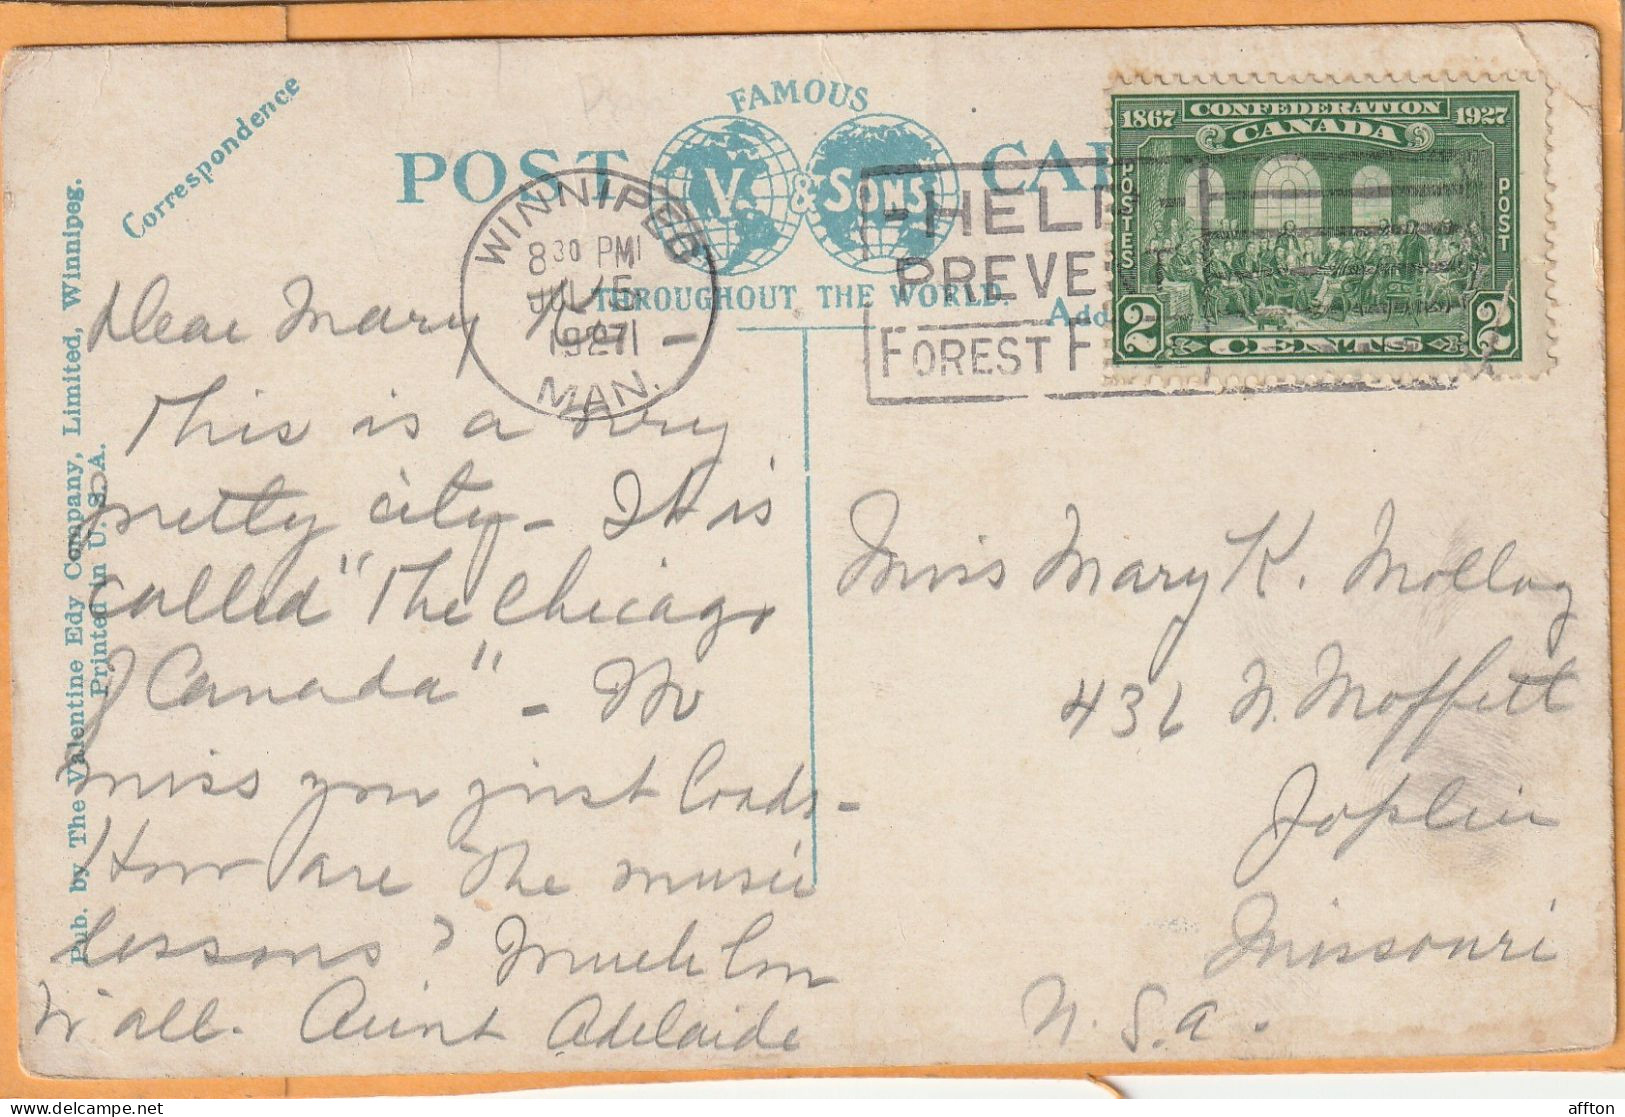 Correspondence
FAMOUS
POST CAR
V. & SONS
THROUGHOUT THE WORLD.
Add
WINNIPEG
8 30 PM
JUL 5
1927
MAN.
HELP
PREVENT
FOREST F
CONFEDERATION
1867 CANADA 1927
POSTES
POST
2 CENTS 2
Pub. by The Valentine Edy Company, Limited, Winnipeg.
Printed in U. S. A.
Dear Mary K. —
This is a very
pretty city - It is
called "The Chicago
of Canada" - We
miss you just loads -
How are the music
lessons? Much love
to all. Aunt Adelaide
Miss Mary K. Molloy
436 N. Moffett
Joplin
Missouri
U. S. A.
delcampe.net
affton